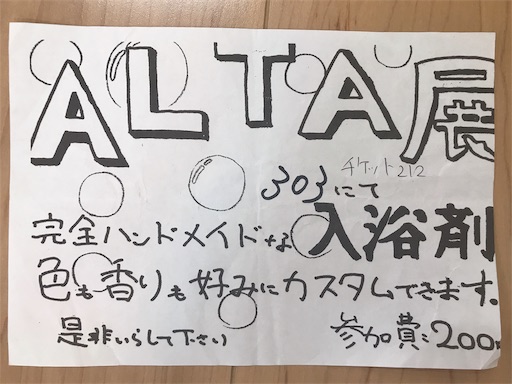 ALTA展
チケット212
303にて
完全ハンドメイドな入浴剤
色も香りも好みにカスタムできます。
是非いらして下さい
参加費:200